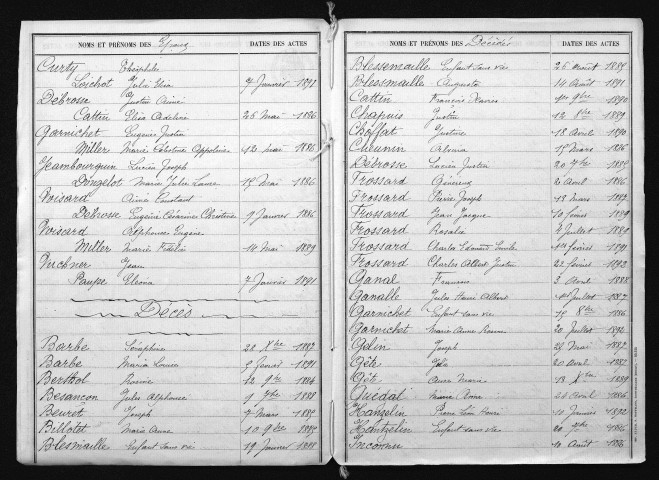 NOMS ET PRÉNOMS DES Epoux DATES DES ACTES
Curty Théophile
Loichot Julie Elisa 7 Janvier 1891
Débrosse Justin Aimé
Cattin Elisa Adeline 26 Mai 1886
Garnichet Eugène Justin
Miller Marie Célestine Appoline 12 Mai 1886
Jeambourquin Lucien Joseph
Dongelot Marie Julie Laure 15 Mai 1886
Voisard Aimé Constant
Debrosse Eugénie Césarine Christine 9 Janvier 1886
Voisard Alphonse Eugène
Miller Marie 14 Mai 1889
Jean
Paupe Elena 7 Janvier 1891
Décès
Barbe Joséphine 28 Xbre 1887
Barbe Maria Louise 5 février 1891
Berthol 12 9bre 1884
Besançon Jules Alphonse 1 7bre 1888
Beuret Joseph 7 Mars 1885
Billotet Marie Anne 10 9bre 1885
Blesmaille Enfant sans vie 19 Janvier 1888
NOMS ET PRÉNOMS DES Décédés DATES DES ACTES
Blessemaille Enfant sans vie 26 Août 1889
Blessmaille Augusta 14 Août 1891
Cattin François Xavier 1er 9bre 1890
Chapuis Justin 12 8bre 1889
Choffat Justine 18 Avril 1890
Chounin 15 Mars 1886
Débrosse Lucien Justin 20 7bre 1885
Frossard Généreux 2 Avril 1886
Frossard Pierre Joseph 13 Mars 1887
Frossard Jean Jacques 10 février 1889
Frossard Rosalie 2 Juillet 1889
Frossard Charles Edouard 1er février 1891
Frossard Charles Albert Justin 22 février 1892
Ganal François 3 Avril 1888
Ganalle Jules Henri Albert 1er Juillet 1887
Garnichet Enfant sans vie 15 8bre 1886
Garnichet Marie Anne 20 Juillet 1892
Gelin Joseph 28 Mai 1887
Gête 20 Avril 1887
Gête Anne Marie 18 Xbre 1889
Guedat Marie Anne 28 Avril 1886
Hanzelin Pierre Léon Henri 10 Janvier 1892
Hantzelin Enfant sans vie 1886
Inconnu 10 Août 1886